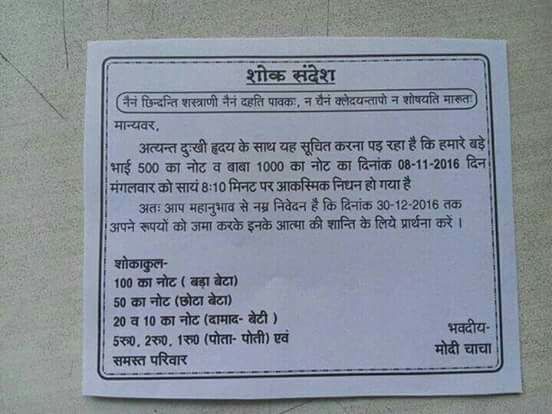 शोक संदेश
नैनं छिन्दन्ति शस्त्राणी नैनं दहति पावकः, न चैनं क्लेदयन्तापो न शोषयति मारूतः
मान्यवर,
अत्यन्त दुःखी हृदय के साथ यह सूचित करना पड़ रहा है कि हमारे बड़े
भाई 500 का नोट व बाबा 1000 का नोट का दिनांक 08-11-2016 दिन
मंगलवार को सायं 8:10 मिनट पर आकस्मिक निधन हो गया है
अतः आप महानुभाव से नम्र निवेदन है कि दिनांक 30-12-2016 तक
अपने रूपयों को जमा करके इनके आत्मा की शान्ति के लिये प्रार्थना करें ।
शोकाकुल-
100 का नोट ( बड़ा बेटा)
50 का नोट (छोटा बेटा)
20 व 10 का नोट (दामाद- बेटी )
5रू0, 2रू0, 1रू0 (पोता- पोती) एवं
समस्त परिवार
भवदीय-
मोदी चाचा